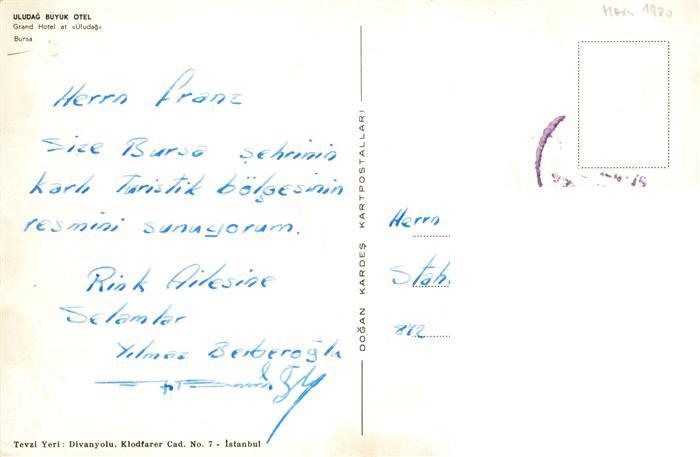 ULUDAĞ BÜYÜK OTEL
Grand Hotel at «Uludağ»
Bursa
Herrn Franz
Size Bursa şehrinin
karlı Turistik bölgesinin
resmini sunuyorum.
Rink Ailesine
Selamlar
Yılmaz Berberoğlu
Tevzi Yeri : Divanyolu, Klodfarer Cad. No. 7 - İstanbul
DOĞAN KARDEŞ KARTPOSTALLARI
1980
Herrn
Stah
872